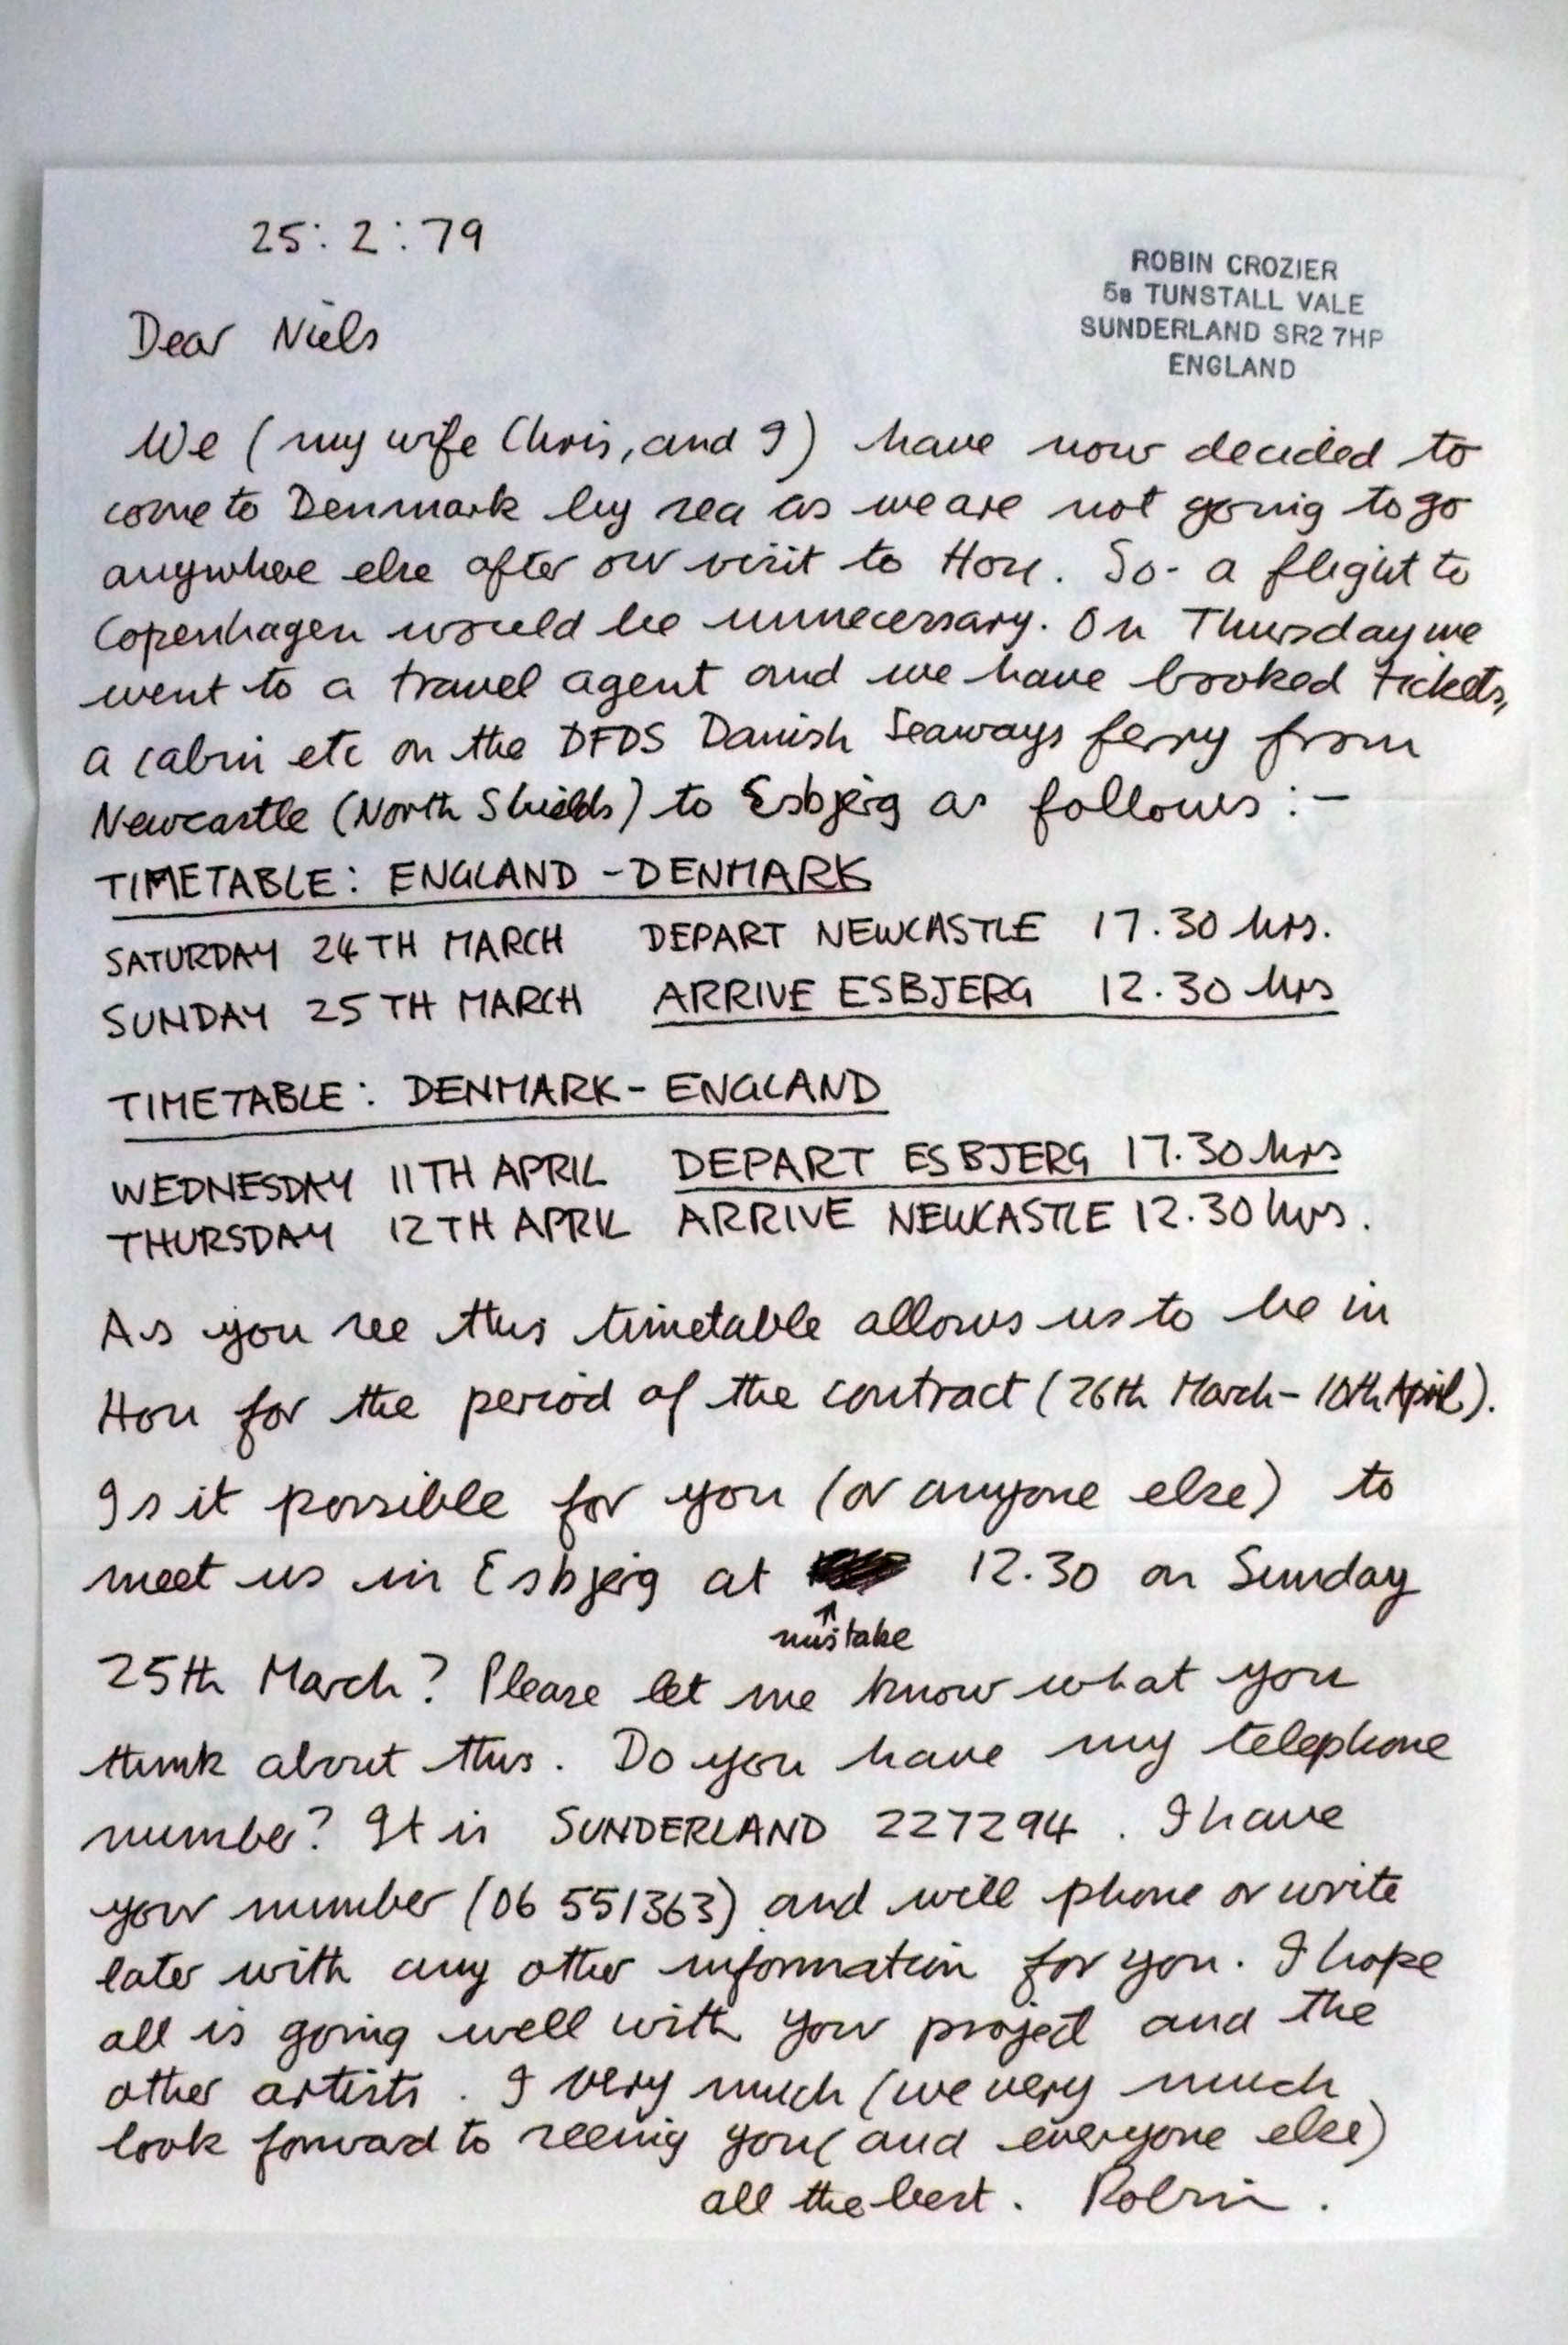 25:2:79
ROBIN CROZIER
5B TUNSTALL VALE
SUNDERLAND SR2 7HP
ENGLAND
Dear Niels
We (my wife Chris, and I) have now decided to
come to Denmark by sea as we are not going to go
anywhere else after our visit to Hou. So- a flight to
Copenhagen would be unnecessary. On Thursday we
went to a travel agent and we have booked tickets,
a cabin etc on the DFDS Danish Seaways ferry from
Newcastle (North Shields) to Esbjerg as follows:-
TIMETABLE: ENGLAND - DENMARK
SATURDAY 24TH MARCH DEPART NEWCASTLE 17.30 hrs.
SUNDAY 25TH MARCH ARRIVE ESBJERG 12.30 hrs
TIMETABLE: DENMARK - ENGLAND
WEDNESDAY 11TH APRIL DEPART ESBJERG 17.30 hrs
THURSDAY 12TH APRIL ARRIVE NEWCASTLE 12.30 hrs.
As you see this timetable allows us to be in
Hou for the period of the contract (26th March - 10th April).
Is it possible for you (or anyone else) to
meet us in Esbjerg at 12.30 on Sunday
↑
mistake
25th March? Please let me know what you
think about this. Do you have my telephone
number? It is SUNDERLAND 227294. I have
your number (06 551363) and will phone or write
later with any other information for you. I hope
all is going well with your project and the
other artists. I very much (we very much
look forward to seeing you (and everyone else)
all the best. Robin.